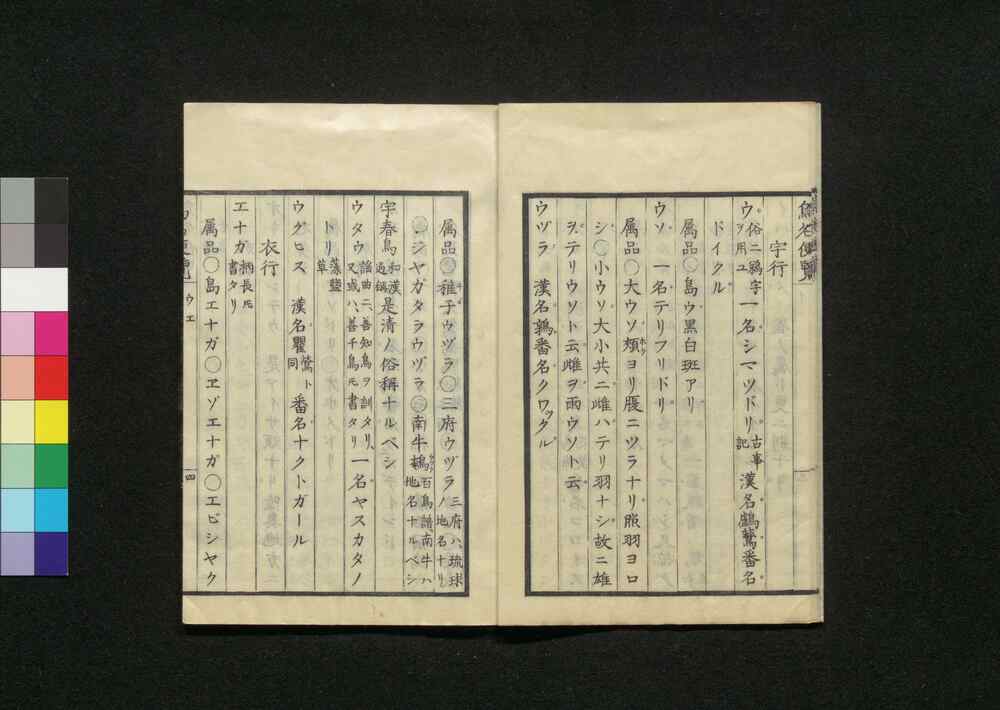 宇行
ウ 俗ニ鵜字ヲ用ユ 一名シマツドリ 古事記 漢名鸕鶿番名
ドイクル
属品〇島ウ黒白斑アリ
ウソ 一名テリフリドリ
属品〇大ウソ頬ヨリ腹ニツラナリ照羽ヨロ
シ〇小ウソ大小共ニ雌ハテリ羽ナシ故ニ雄
ヲテリウソト云雌ヲ雨ウソト云
ウヅラ 漢名鶉番名クワッタル
属品〇稚子ウヅラ〇三府ウヅラ 三府ハ琉球ノ地名ナリ
〇ジヤガタラウヅラ〇南牛鵪 百鳥譜南牛ハ地名ナルベシ
宇春鳥 和漢通稱 是清ノ俗稱ナルベシ
ウタウ 謡曲ニ善知鳥ヲ訓タリ又或ハ善千鳥トモ書タリ 一名ヤスカタノ
トリ 藻鹽草
ウグヒス 漢名 鶯ト同 番名ナクトガール
衣行
エナガ 柄長トモ書タリ
属品〇島エナガ〇ヱゾエナガ〇エビシヤク
ウエ
四